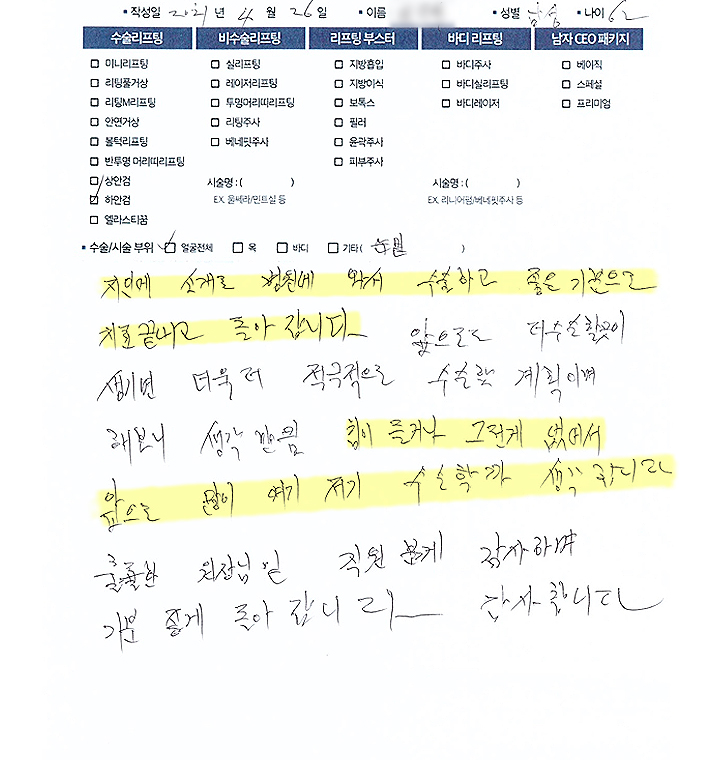 ▪작성일 2021 년 4 월 26 일 ▪이름 ▪성별 남성 ▪나이 62
수술리프팅 비수술리프팅 리프팅 부스터 바디 리프팅 남자 CEO 패키지
미니리프팅 실리프팅 지방흡입 바디주사 베이직
리팅풀거상 레이저리프팅 지방이식 바디실리프팅 스페셜
리팅M리프팅 투명머리띠리프팅 보톡스 바디레이저 프리미엄
안면거상 리팅주사 필러
볼턱리프팅 베네핏주사 윤곽주사
반투명 머리띠리프팅 피부주사
상안검 시술명 : ( ) 시술명 : ( )
하안검 EX. 울쎄라/민트실 등 EX. 리니어펌/베네핏주사 등
엘라스티꿈
▪수술/시술 부위 얼굴전체 목 바디 기타 ( 눈밑 )
지인에 소개로 병원에 와서 수술하고 좋은 기분으로
치료 끝나고 돌아 갑니다 앞으로도 더수술할곳이
생기면 더욱 더 적극적으로 수술할 계획이며
해보니 생각 만큼 힘이 들거나 그런게 없어서
앞으로 많이 여기 저기 수술할까 생각 합니다
훌륭한 원장님 및 직원 분께 감사하며
기분 좋게 돌아 갑니다 감사합니다